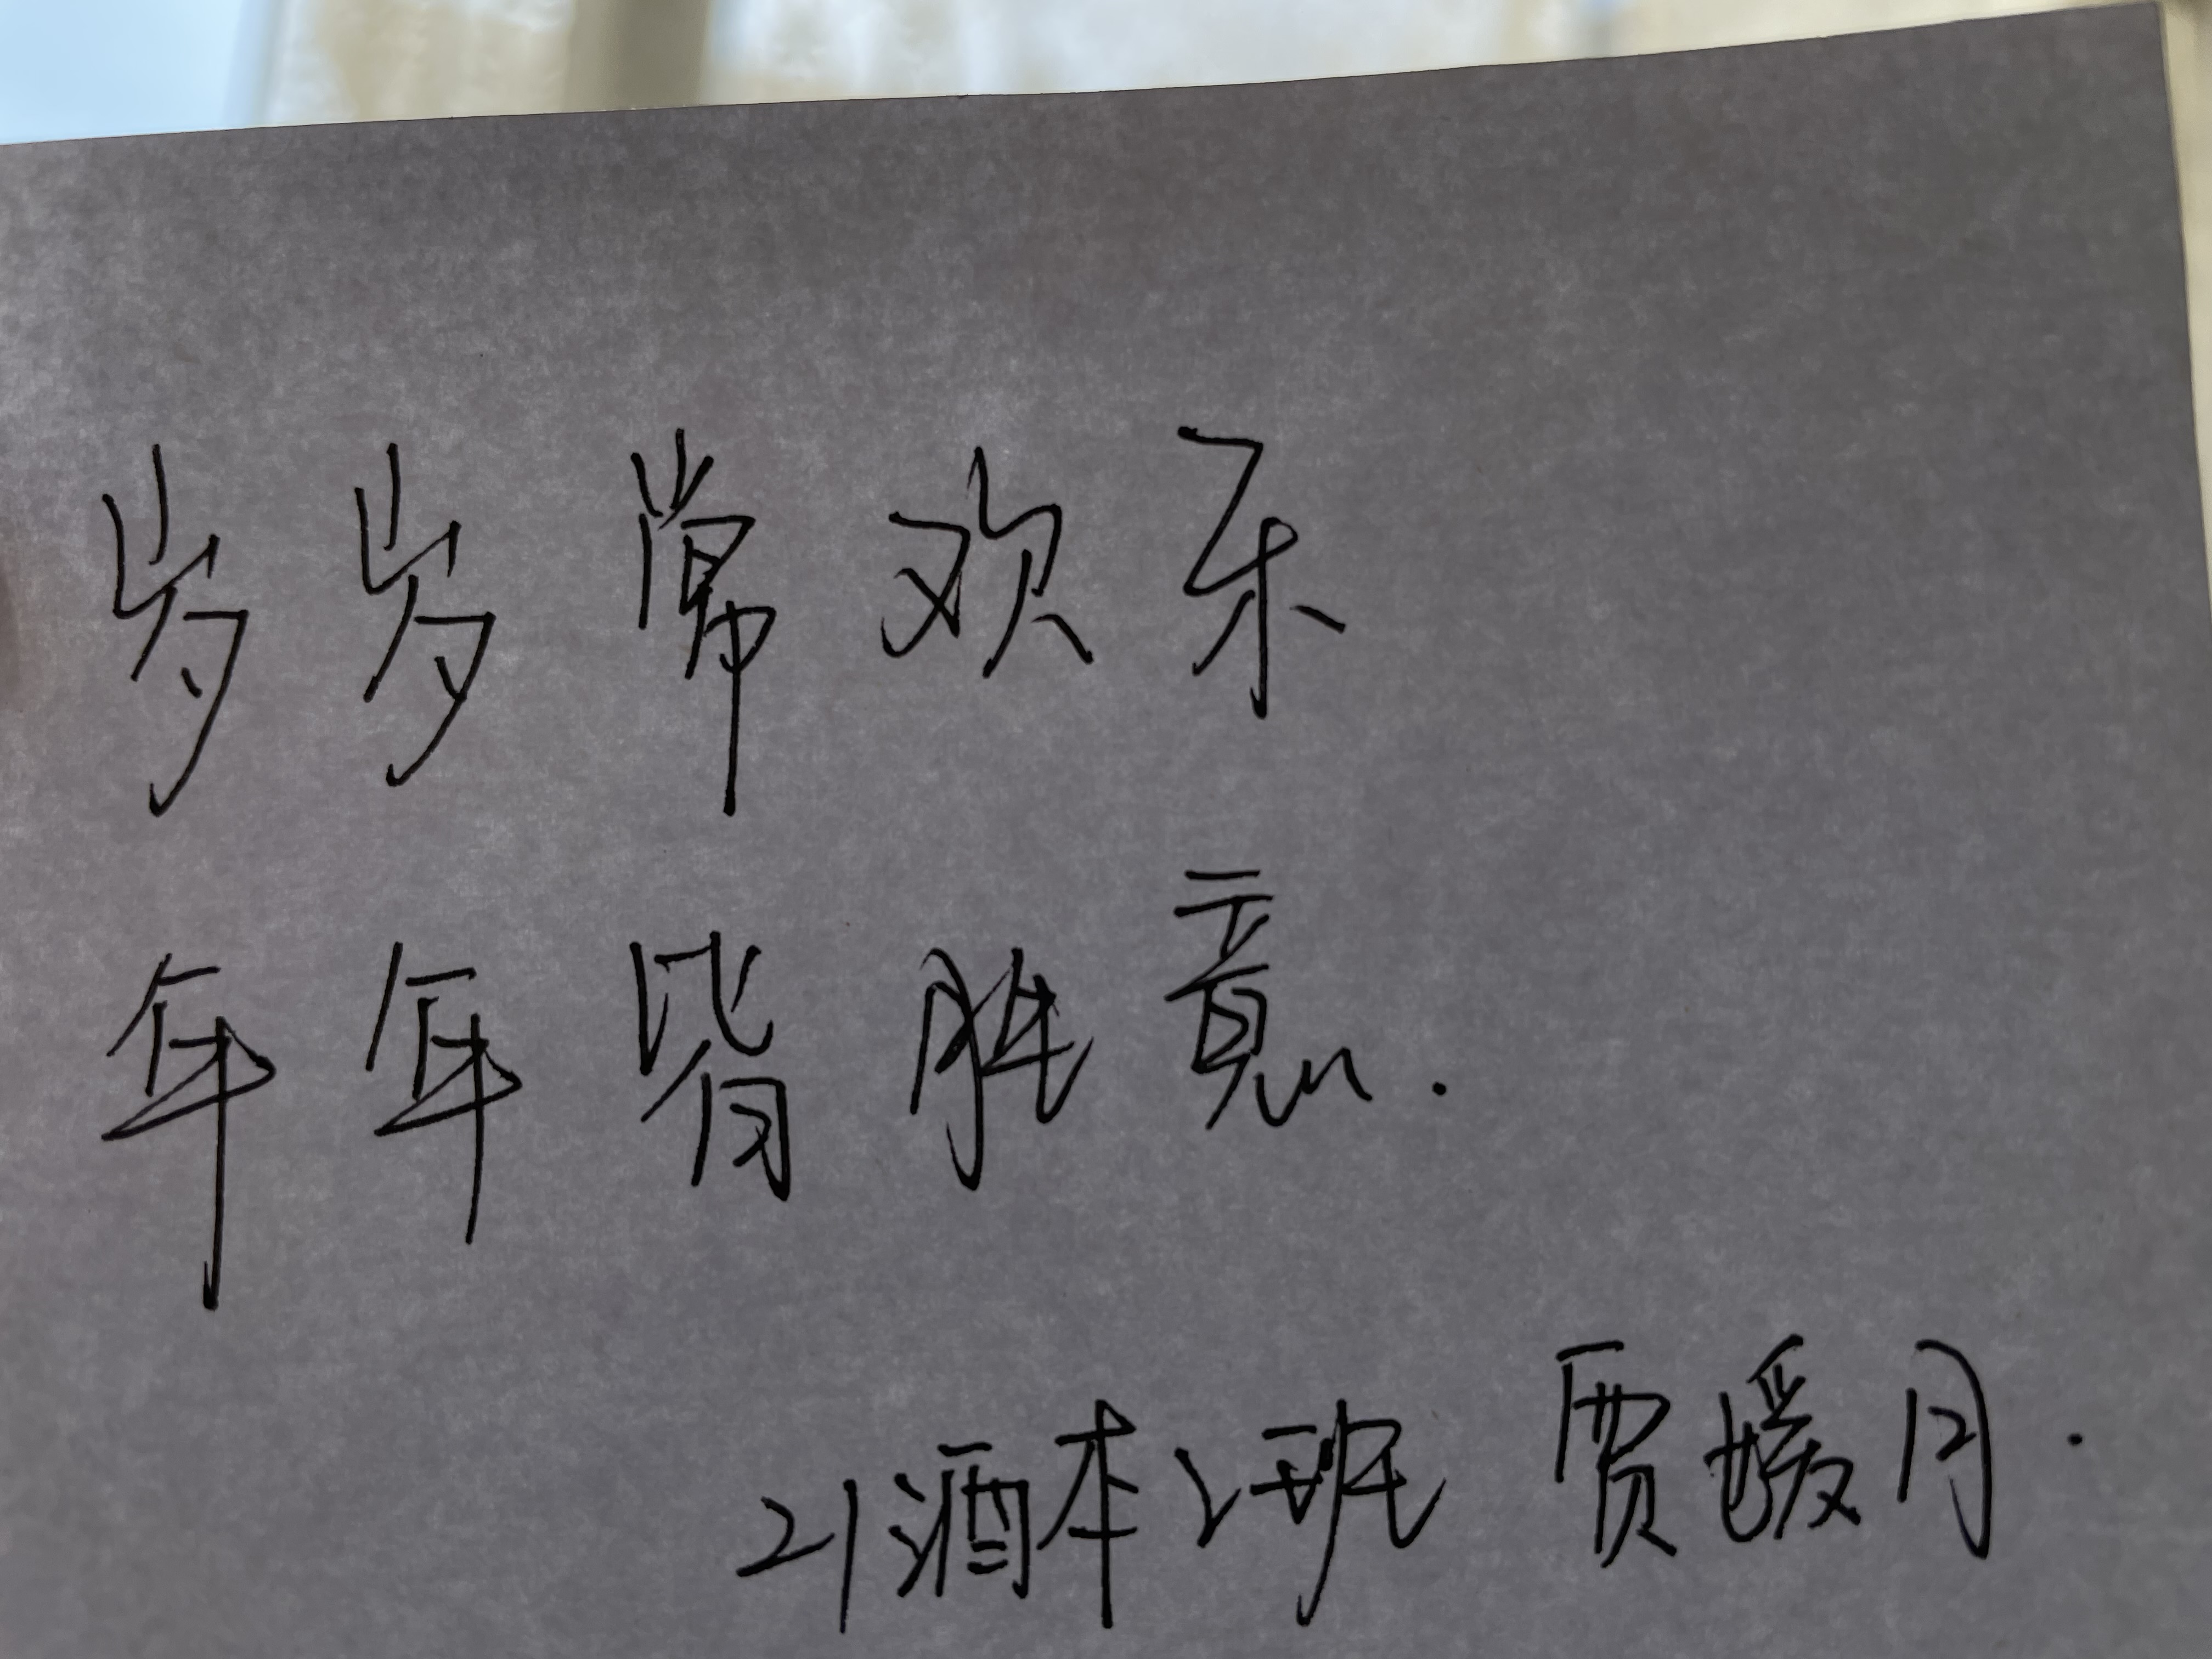 岁岁常欢乐
年年皆胜意.
21酒本2班 贾媛月.